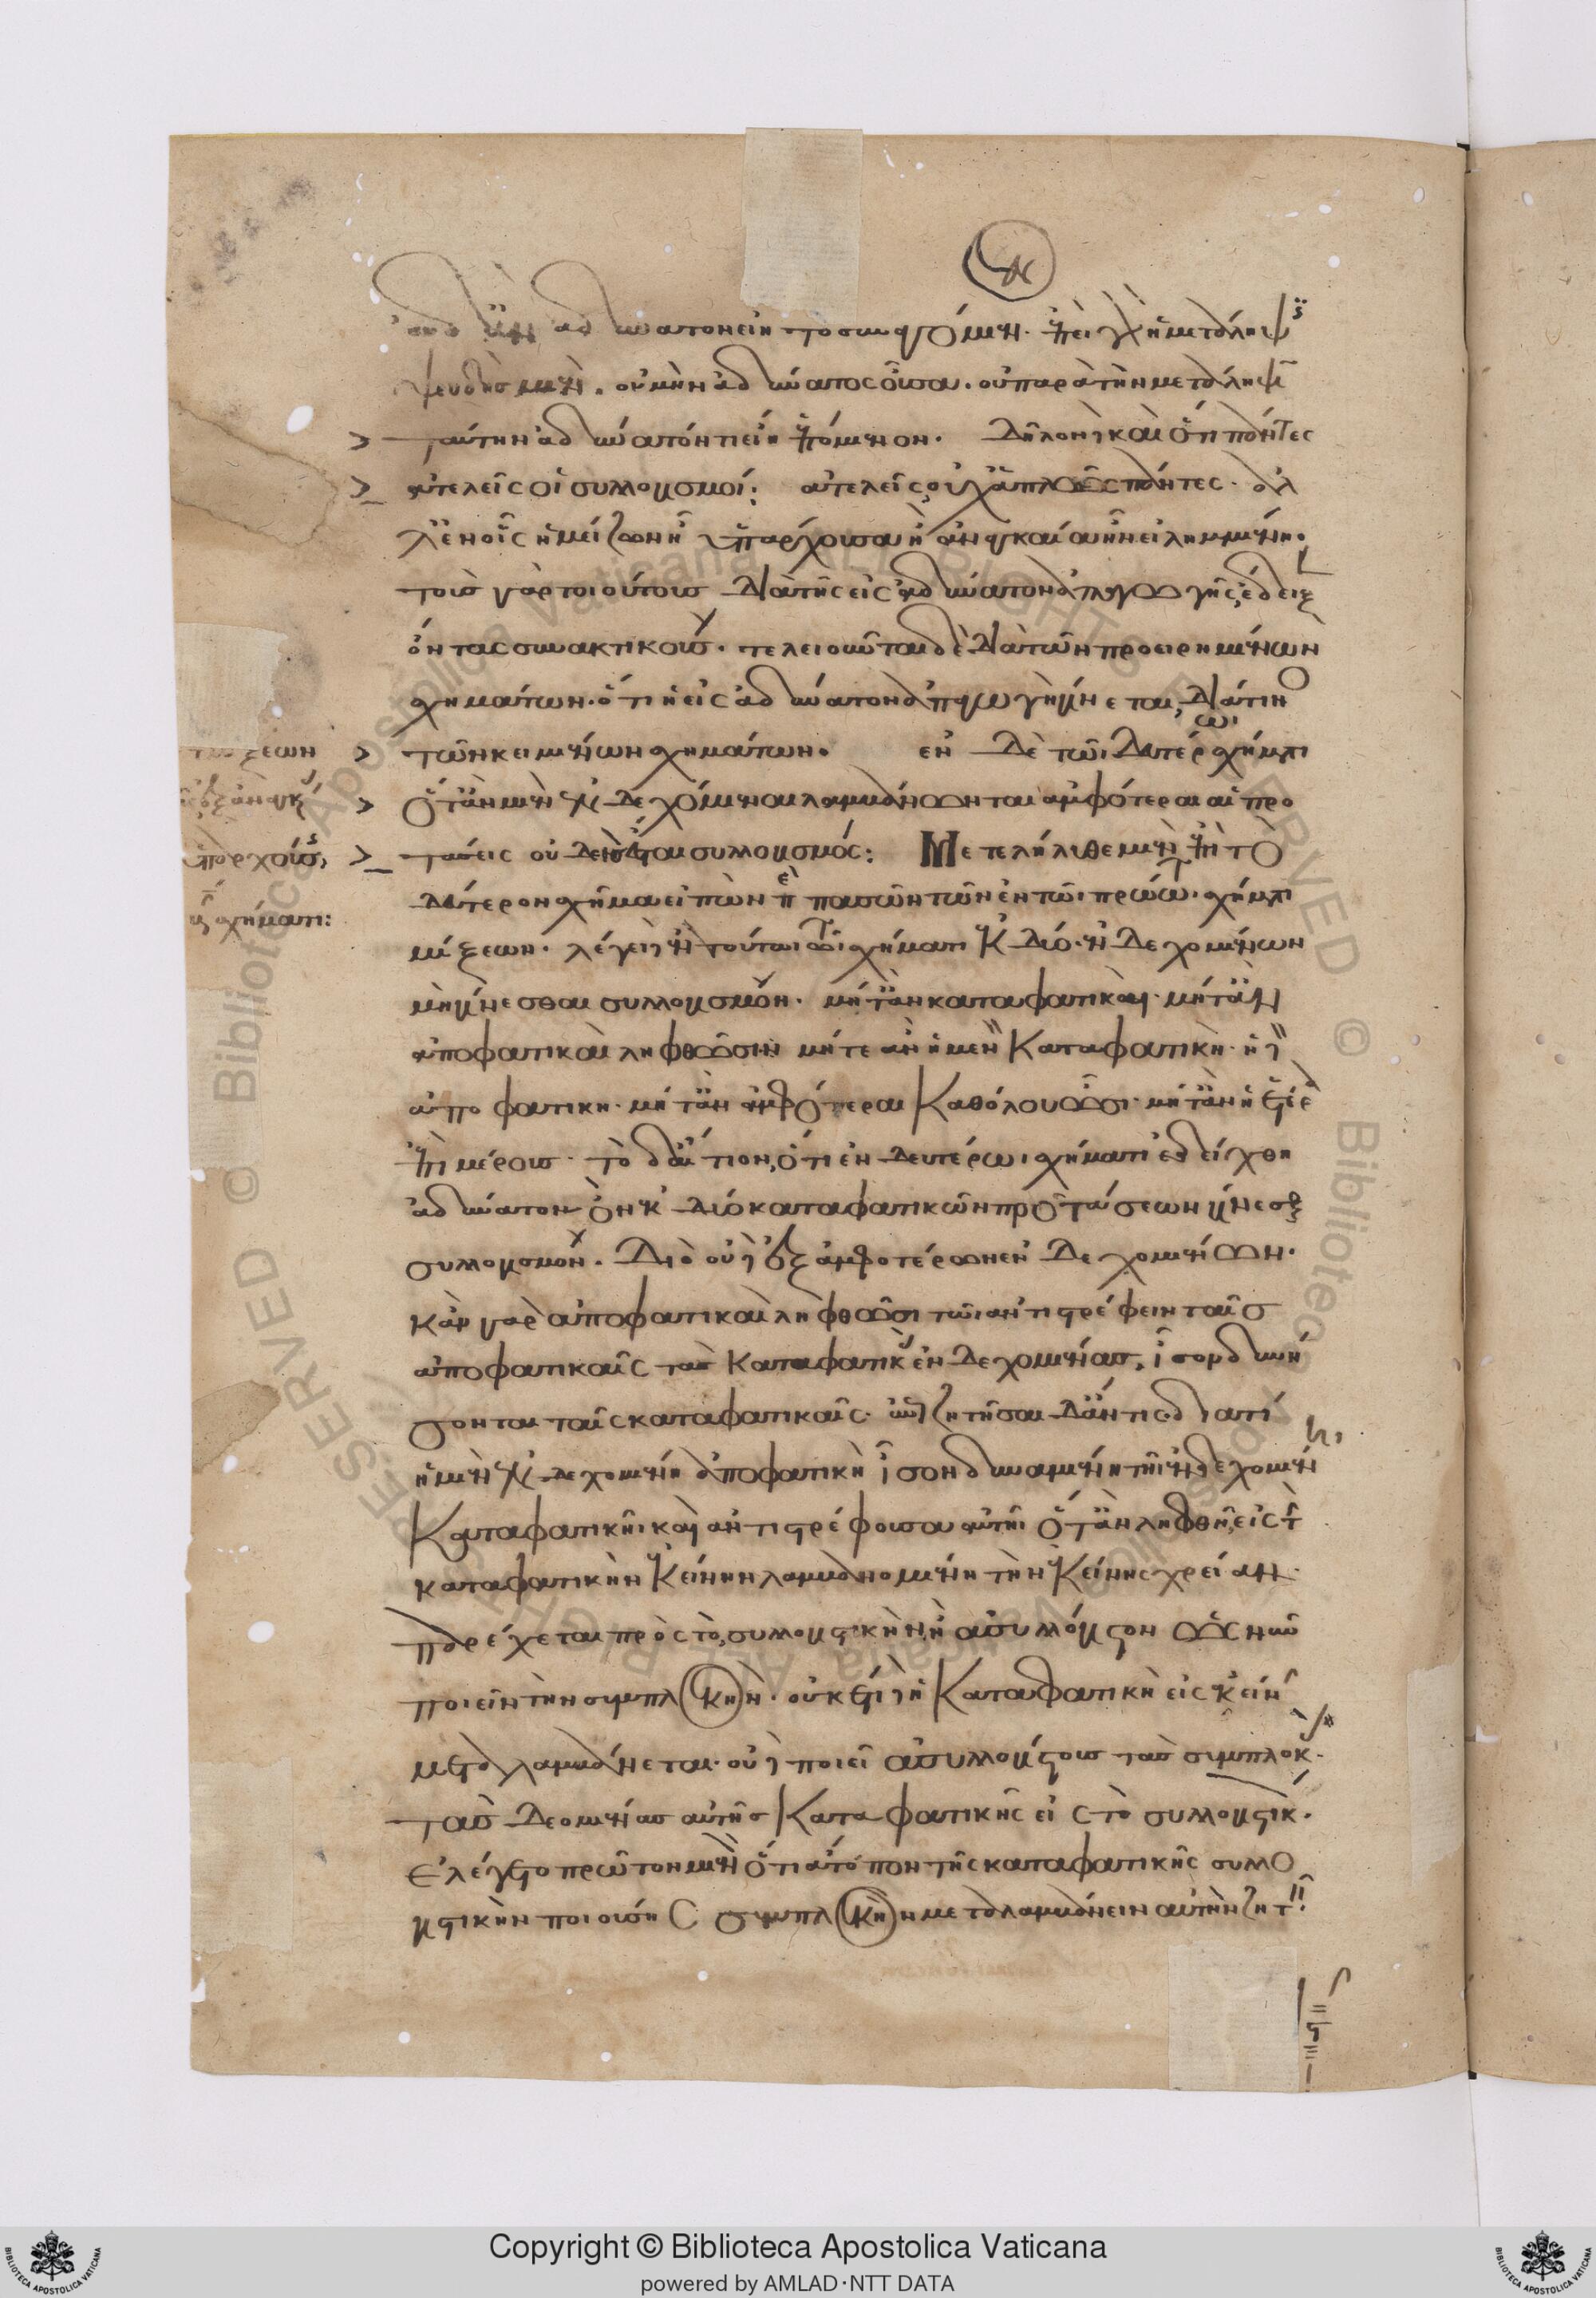 ἀδύνατον εἶναι τὸ συναγόμενον. ἐπεὶ γὰρ ἡ μετάληψις
ψευδὴς μὲν. οὐ μὴν ἀδύνατος οὖσα. οὐ παρὰ τὴν μετάληψιν
ταύτην ἀδύνατόν τι εἴη ἑπόμενον. Δῆλον δὲ καὶ ὅτι πάντες
ἀτελεῖς οἱ συλλογισμοί: ἀτελεῖς οὐχ ἁπλῶς πάντες. ἀλ
λ' ἐν οἷς ἡ μείζων ἦν ὑπάρχουσα ἢ ἀναγκαία ἦν εἰλημμένη.
τοὺς γὰρ τοιούτους διὰ τῆς εἰς ἀδύνατον ἀπαγωγῆς ἔδειξεν
ὄντας συνακτικούς. τελειοῦνται δὲ διὰ τῶν προειρημένων
σχημάτων. ὅτι ἡ εἰς ἀδύνατον ἀπαγωγὴ γίνεται διά τινο
τῶν κειμένων σχημάτων. ἐν δὲ τῶι δευτέρωι σχήματι
ὅταν μὲν ἐνδεχόμεναι λαμβάνωνται ἀμφότεραι αἱ προ
τάσεις οὐδεὶς ἔσται συλλογισμός: Μετελήλυθε μὲν ἐπὶ τὸ
δεύτερον σχῆμα εἰπὼν περὶ πασῶν τῶν ἐν τῶι πρώτω σχήματι
μίξεων. λέγει δὲ ἐν τούτωι τῶι σχήματι ἐκ δύο ἐνδεχομένων
μὴ γίνεσθαι συλλογισμόν. μήτ' ἂν καταφατικαὶ μήτ' ἂν
ἀποφατικαὶ ληφθῶσιν μήτε ἂν ἡ μὲν καταφατικὴ ἡ δὲ
ἀποφατική. μήτ' ἂν ἀμφότεραι καθόλου ὦσι. μήτ' ἂν ἡ ἑτέρα
ἐπὶ μέρους. τὸ δ' αἴτιον, ὅτι ἐν δευτέρωι σχήματι ἐδείχθη
ἀδύνατον ὂν ἐκ δύο καταφατικῶν προτάσεων γίνεσθαι
συλλογισμόν. Διὸ οὐδὲ ἐξ ἀμφοτέρων ἐνδεχομένων.
κἂν γὰρ ἀποφατικαὶ ληφθῶσι τῶι ἀντιστρέφειν ταῖς
ἀποφατικαῖς τὰς καταφατικὰς ἐνδεχομένας, ἴσον δυνή
σονται ταῖς καταφατικαῖς. ζητῆσαι δ' ἄν τις. διατί
ἡ μὲν ἐνδεχομένη ἀποφατικὴ ἴσον δυναμένη τῆι ἐνδεχομένηι
καταφατικῆι καὶ ἀντιστρέφουσα αὐτῆι ὅταν ληφθῆ, εἰς τὴν
καταφατικὴν ἐκείνην λαμβανομένη τὴν ἐκείνης χρείαν
παρέχεται πρὸς τὸ συλλογιστικὴν ἢ ἀσυλλόγιστον ὡς νῦν
ποιεῖν τὴν συμπλοκήν. οὐκέτι δὲ ἡ καταφατικὴ εἰς ἐκείνην
μεταλαμβάνεται. οὐδὲ ποιεῖ ἀσυλλογίστους τὰς συμπλοκὰς
τὰς δεομένας αὐτῆς καταφατικῆς εἰς τὸ συλλογιστικ.
Ἐλέγετο πρῶτον μὲν ὅτι ἄτοπον τῆς καταφατικῆς συλλο
γιστικὴν ποιούσης συμπλοκὴν μεταλαμβάνειν αὐτὴν ζητεῖν
σχήματι:
Copyright © Biblioteca Apostolica Vaticana
powered by AMLAD·NTT DATA